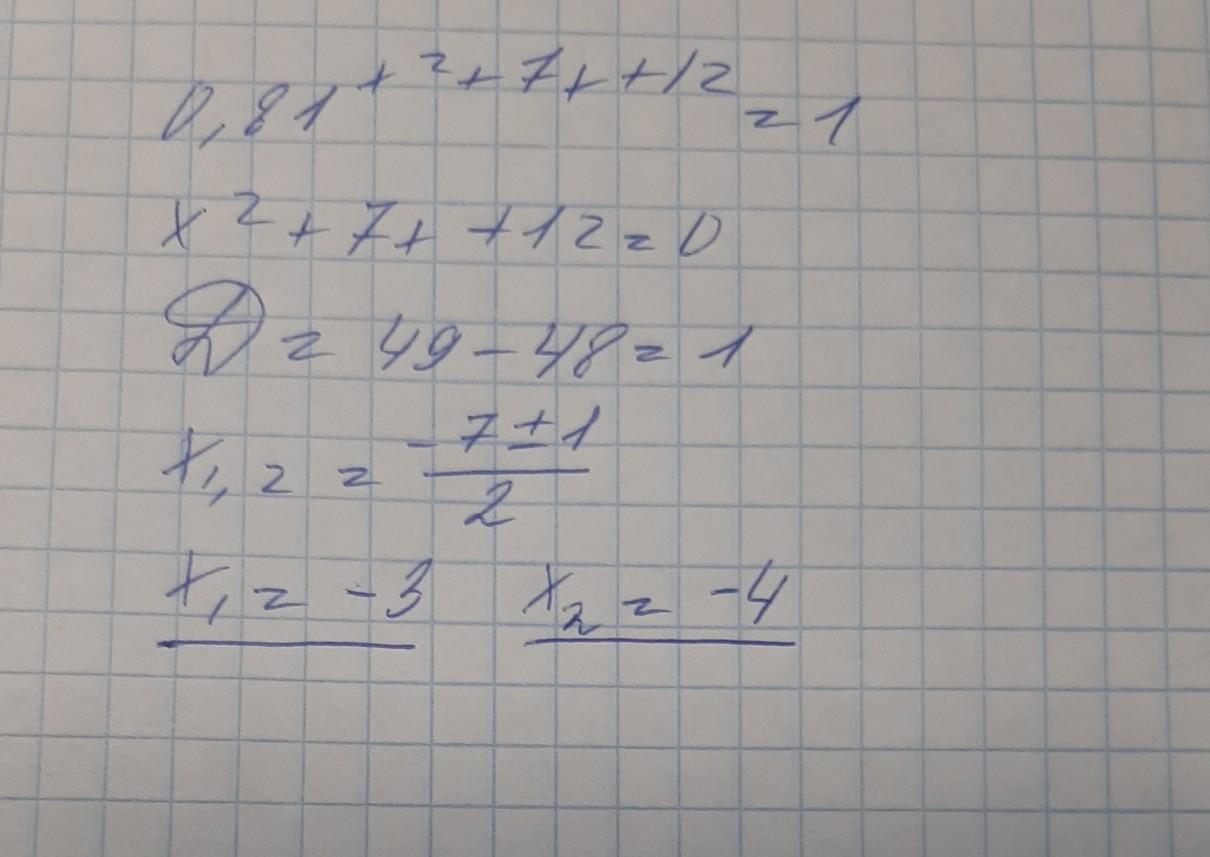 0,81^{x^2+7x+12}=1
x^2+7x+12=0
D=49-48=1
x_{1,2}=\frac{-7±1}{2}
x_1=-3 x_2=-4